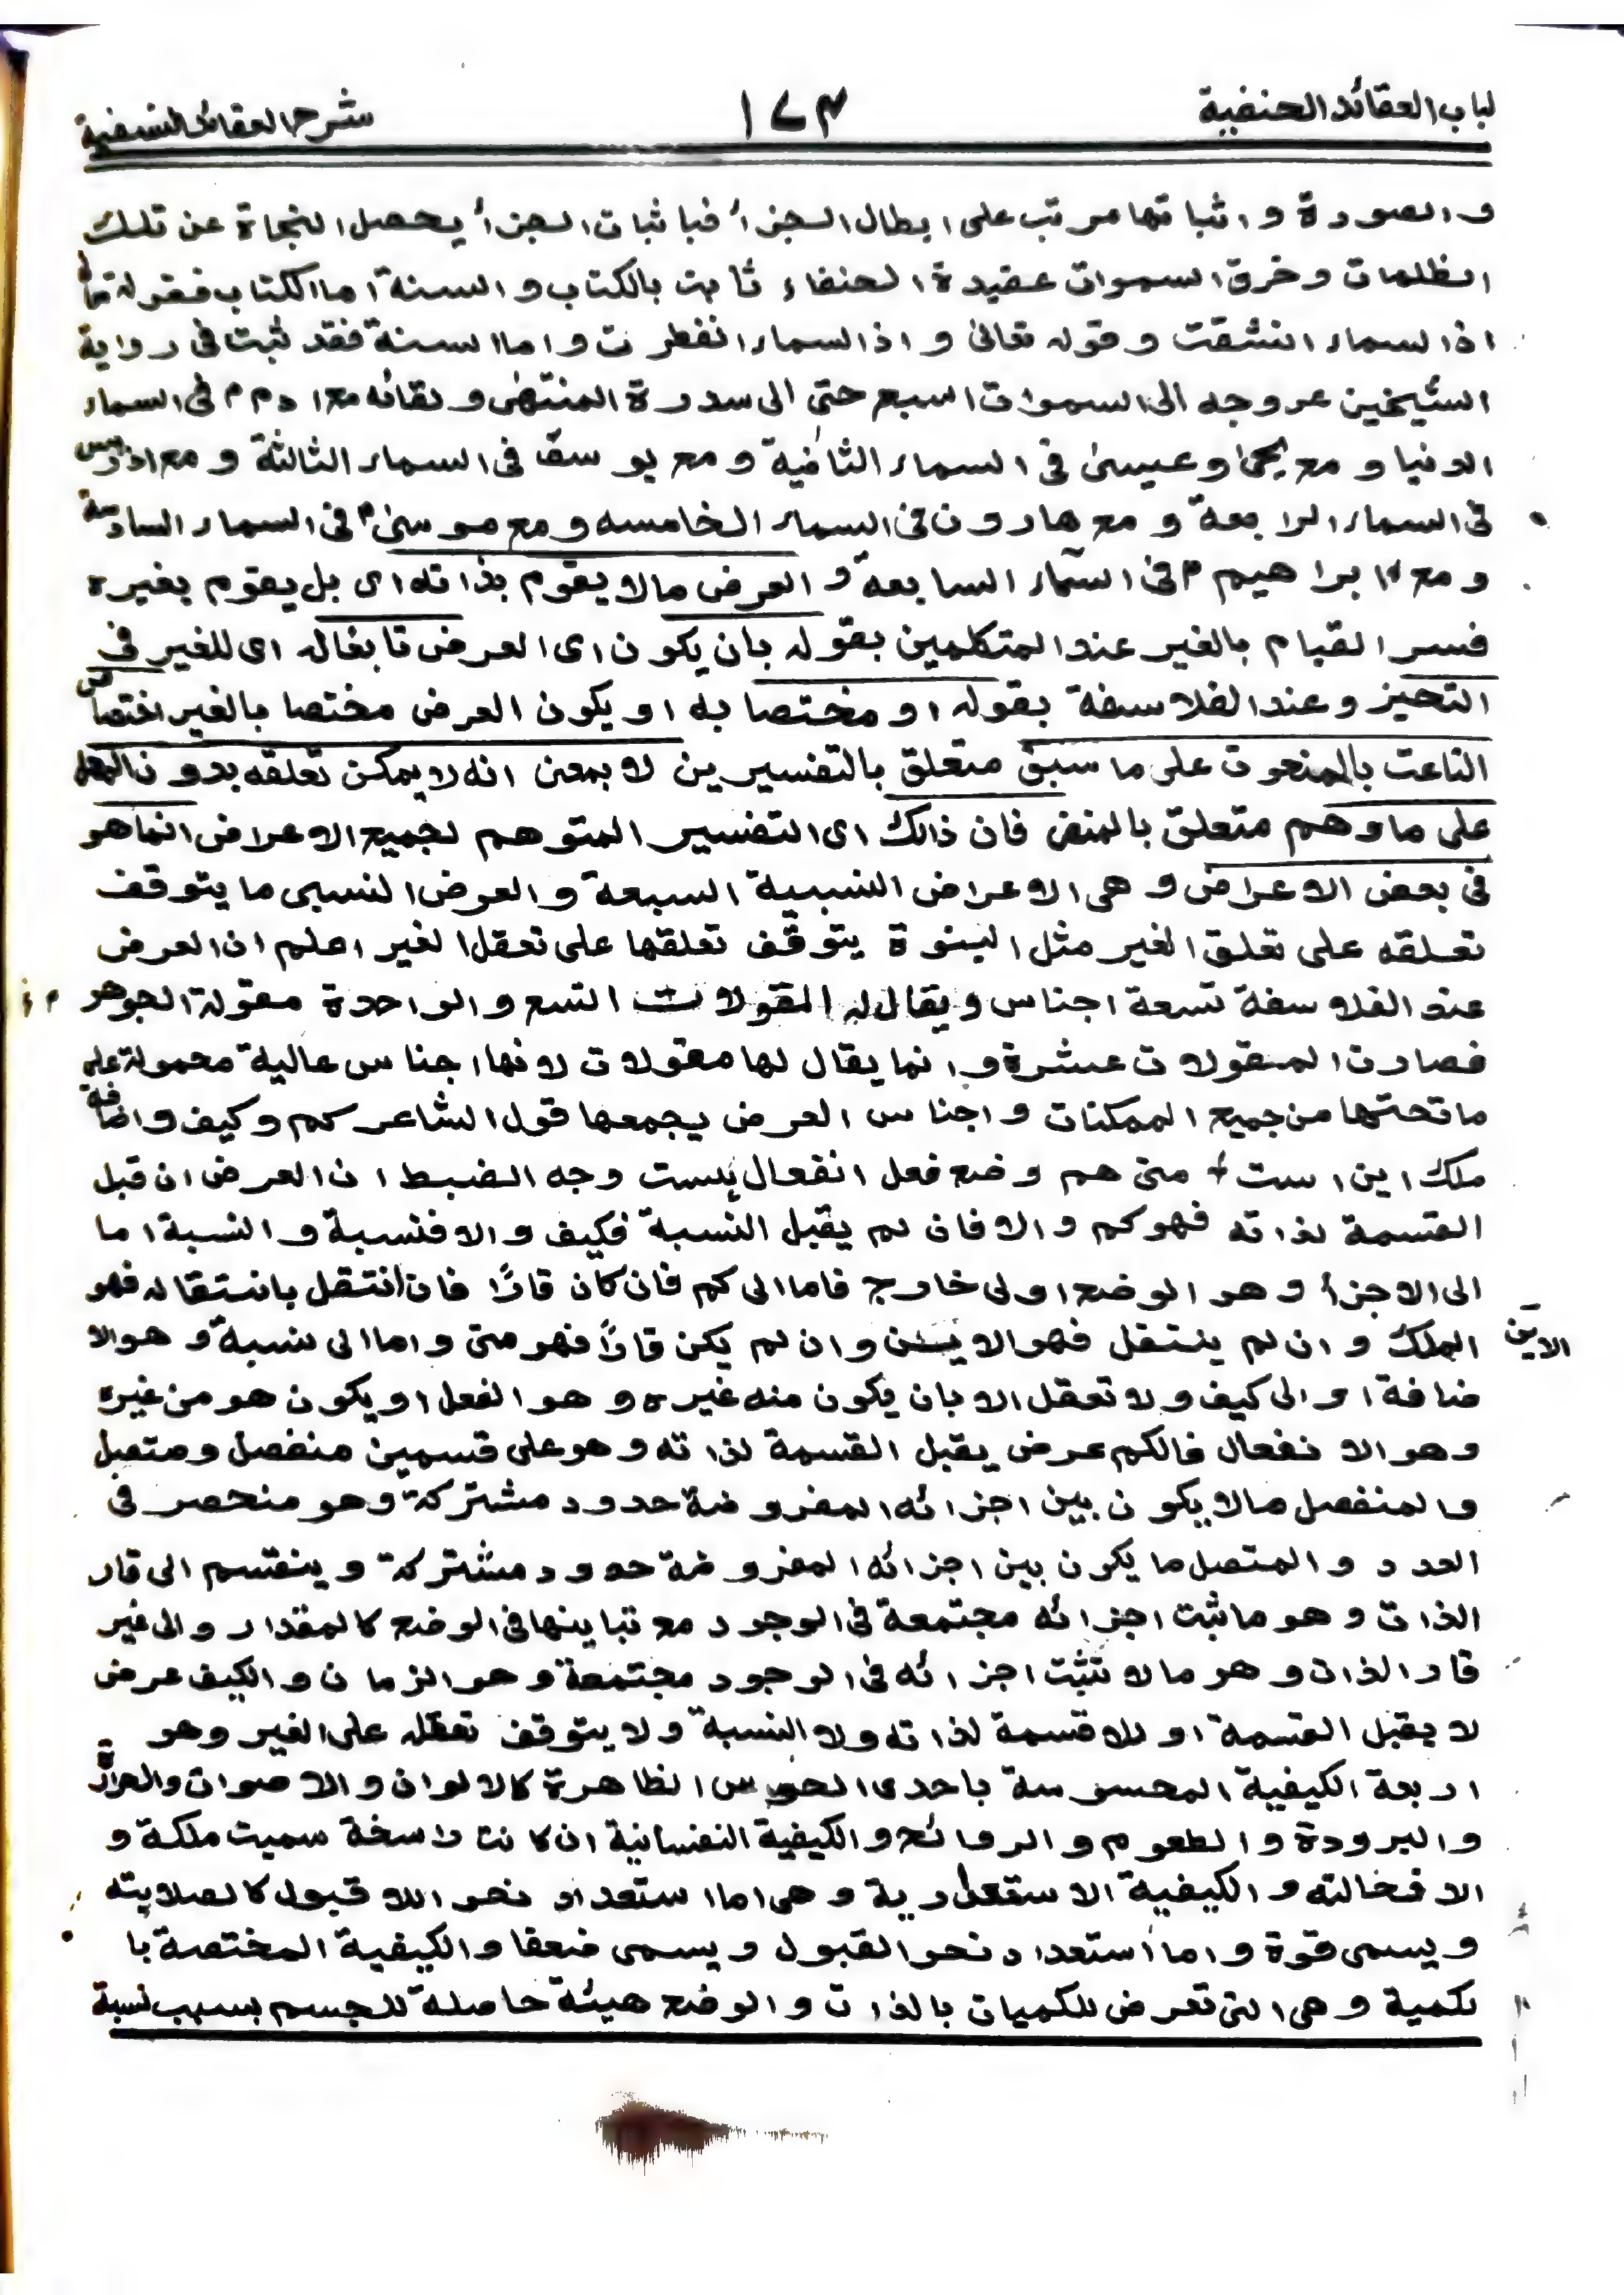 لباب العقائد الحنفية
١٧٣
شرح العقائد النسفية
و الصورة و اثباتها مرتب على ابطال الجزأ فباثبات الجزأ يحصل النجاة عن تلك
الظلمات و خرق السموات عقيدة الحنفاء ثابت بالكتاب و السنة اما الكتاب فقوله تعالى
اذا السماء انشقت و قوله تعالى و اذا السماء انفطرت و اما السنة فقد ثبت فى رواية
الشيخين عروجه الى السموات السبع حتى الى سدرة المنتهىٰ و لقائه مع ادم م فى السماء
الدنيا و مع يحىٰ و عيسىٰ فى السماء الثانية و مع يوسف فى السماء الثالثة و مع ادريس
فى السماء الرابعة و مع هارون فى السماء الخامسه و مع موسىٰ م فى السماء السادسة
و مع ابراهيم م فى السمآء السابعة و العرض مالا يقوم بذاته اى بل يقوم بغيره
فسر القيام بالغير عند المتكلمين بقوله بان يكون اى العرض تابعاله اى للغير فى
التحيز و عند الفلاسفة بقوله او مختصا به او يكون العرض مختصا بالغير اختصاص
الناعت بالمنعوت على ما سبق متعلق بالتفسيرين لا بمعنى انه لا يمكن تعلقه بدون المحل
على ما وهم متعلق بالمنفى فان ذالك اى التفسير المتوهم لجميع الاعراض انما هو
فى بعض الاعراض و هى الاعراض النسبية السبعة و العرض النسبى ما يتوقف
تعلقه على تعلق الغير مثل البنوة يتوقف تعلقها على تعقل الغير اعلم ان العرض
عند الفلاسفة تسعة اجناس و يقال له المقولات التسع و الواحدة مقولة الجوهر
فصارت المقولات عشرة و انما يقال لها مقولات لانها اجناس عالية محمولة على
ما تحتها من جميع الممكنات و اجناس العرض يجمعها قول الشاعر كم و كيف و اضافة
ملك اين است متى هم وضع فعل انفعال وجه الضبط ان العرض ان قبل
القسمة لذاته فهو كم و الا فان لم يقبل النسبة فكيف و الا فنسبة و النسبة اما
الى الاجزا و هو الوضع او لى خارج فاما الى كم فان كان قارًا فان انتقل بانتقاله فهو
الملك و ان لم ينتقل فهو الاين و ان لم يكن قارًا فهو متى و اما الى نسبة و هو الا
الاين
ضافة او الى كيف و لا تعقل الا بان يكون منه غيره و هو الفعل او يكون هو من غيره
و هو الا نفعال فالكم عرض يقبل القسمة لذاته و هو على قسمين منفصل و متصل
و المنفصل مالا يكون بين اجزائه المفروضة حدود مشتركة و هو منحصر فى
العدد و المتصل ما يكون بين اجزائه المفروضة حدود مشتركة و ينقسم الى قار
الذات و هو ما ثبت اجزائه مجتمعة فى الوجود مع تباينها فى الوضع كالمقدار و الى غير
قار الذات و هو مالا تثبت اجزائه فى الوجود مجتمعة و هو الزمان و الكيف عرض
لا يقبل القسمة او للا قسمة لذاته و لا النسبة و لا يتوقف تعقله على الغير و هو
اربعة الكيفية المحسوسة باحدى الحواس الظاهرة كالالوان و الاصوات و الحرارة
و البرودة و الطعوم و الروائح و الكيفية النفسانية ان كانت راسخة سميت ملكة و
الا فحالته و الكيفية الاستعدادية و هى اما استعداد نحو اللا قبول كالصلابته
و يسمى قوة و اما استعداد نحو القبول و يسمى ضعفا و الكيفية المختصة با
لكمية و هى التى تعرض للكميات بالذات و الوضع هيئة حاصلة للجسم بسبب نسبة